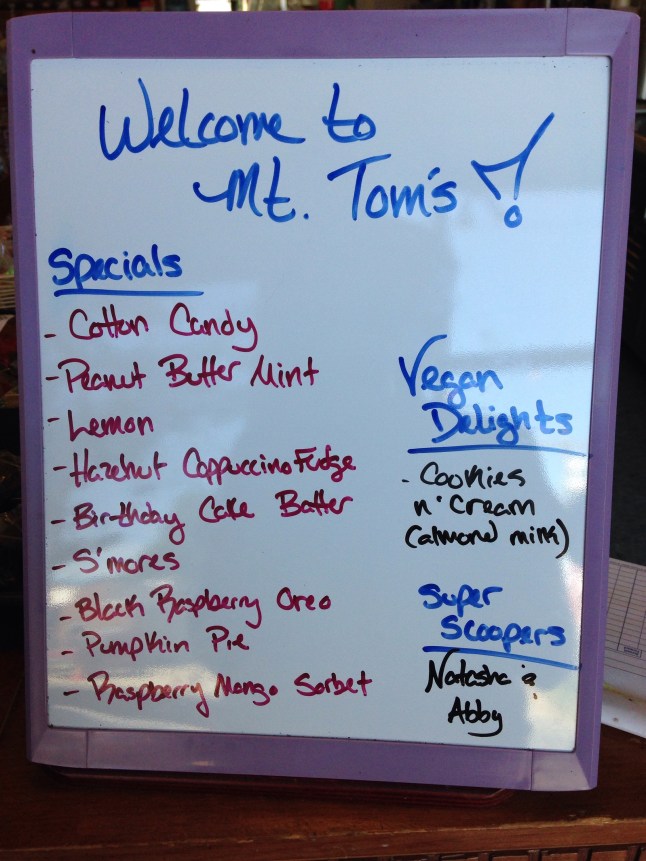 Welcome to
Mt. Tom's!
Specials
- Cotton Candy
- Peanut Butter Mint
- Lemon
- Hazelnut Cappuccino Fudge
- Birthday Cake Batter
- S'mores
- Black Raspberry Oreo
- Pumpkin Pie
- Raspberry Mango Sorbet
Vegan
Delights
- Cookies
n' Cream
(almond milk)
Super
Scoopers
Natasha &
Abby